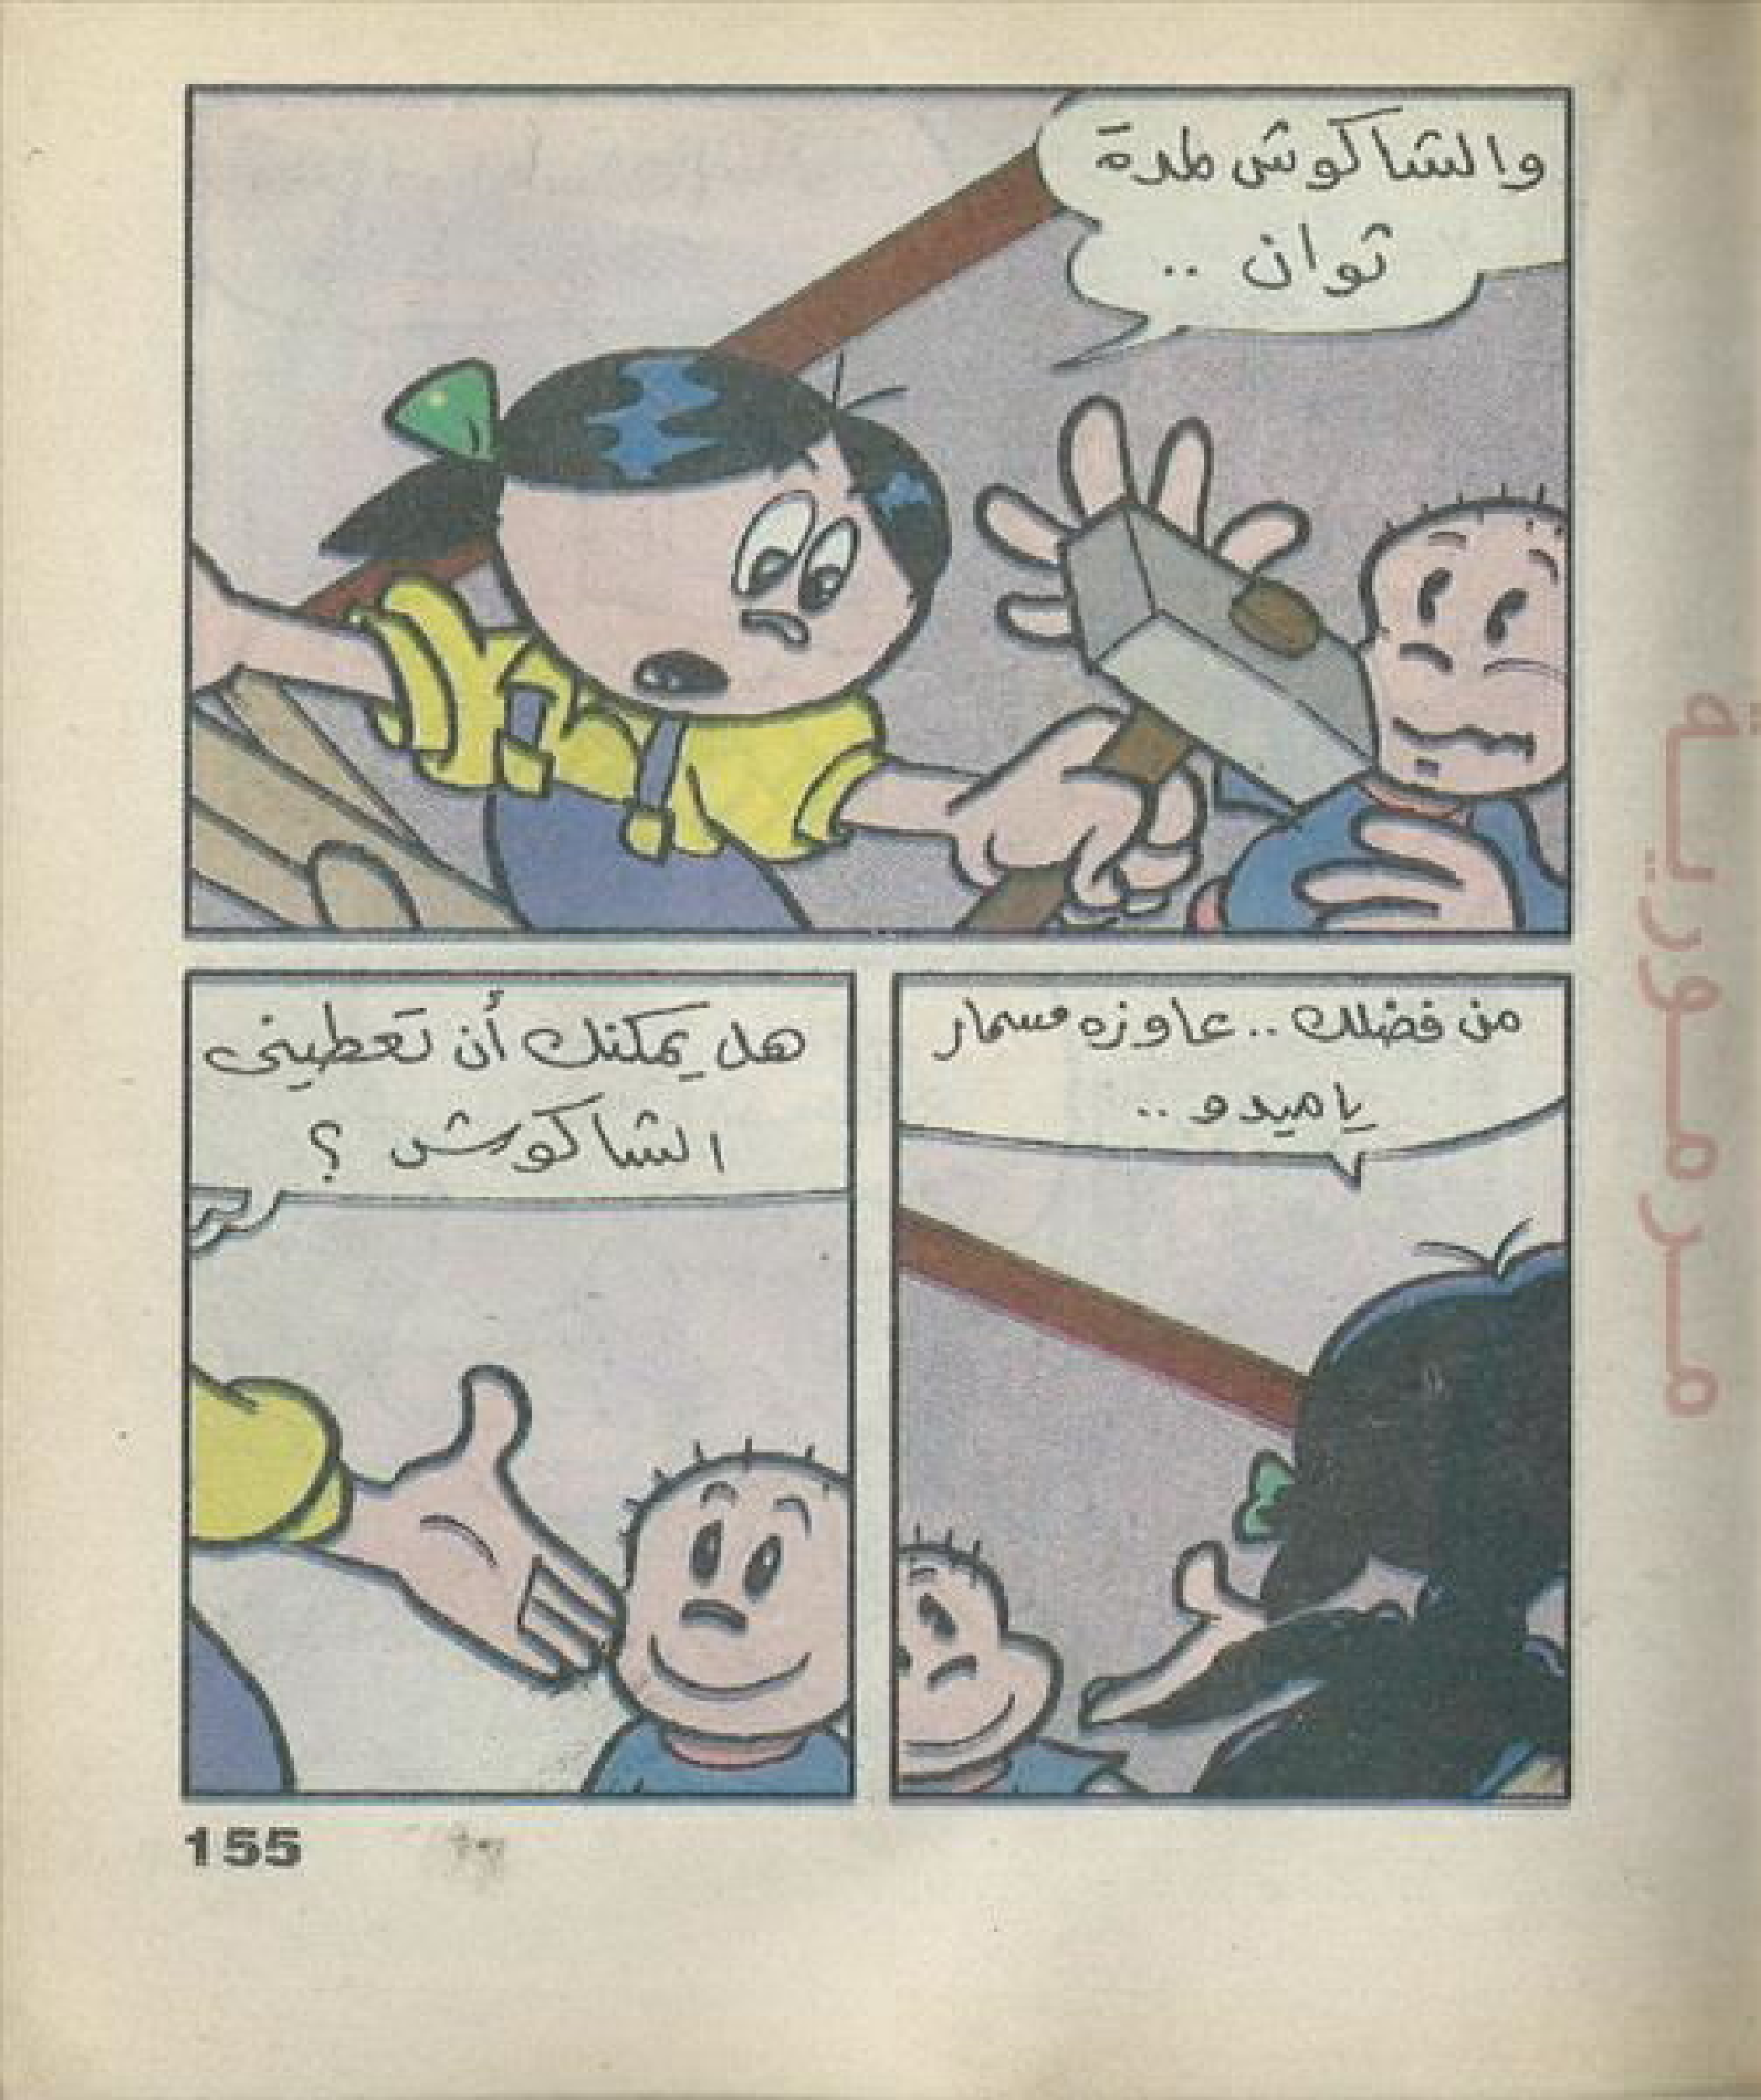 والشاكوش لمدة
ثوان ..
من فضلك .. عاوزه مسمار
يا ميدو ..
هل يمكنك أن تعطينى
الشاكوش ؟
155
مرمورية